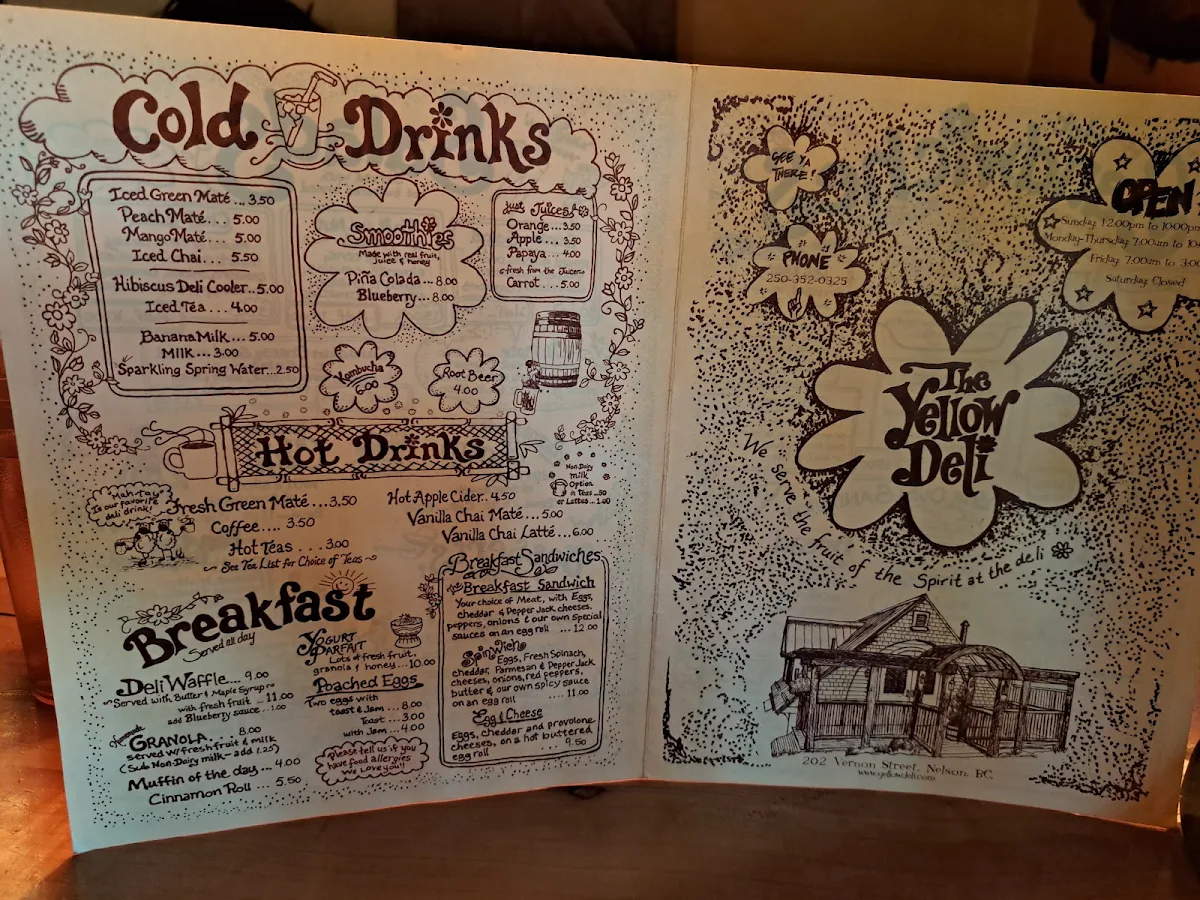 Cold Drinks
Iced Green Maté... 3.50
Peach Maté... 5.00
Mango Maté... 5.00
Iced Chai... 5.50
Hibiscus Deli Cooler..5.00
Iced Tea... 4.00
Banana Milk... 5.00
Milk... 3.00
Sparkling Spring Water...2.50
Smoothies
Made with real fruit,
juice & honey
Piña Colada...8.00
Blueberry...8.00
Just Juices
Orange...3.50
Apple... 3.50
Papaya... 4.00
fresh from the Juicer
Carrot... 5.00
Kombucha
6.00
Root Beer
4.00
Hot Drinks
Non-Dairy
milk
Option
in Teas...50
or Lattes...1.00
Mah-Tay
Is our favorite
deli drink!
Fresh Green Maté...3.50
Coffee.... 3.50
Hot Teas ... 3.00
~ See Tea List for Choice of Teas ~
Hot Apple Cider. 4.50
Vanilla Chai Maté... 5.00
Vanilla Chai Latté... 6.00
Breakfast
Served all day
Deli Waffle... 9.00
~Served with Butter & Maple Syrup~
with fresh fruit ... 11.00
add Blueberry sauce..1.00
Homemade
GRANOLA.... 8.00
served w/fresh fruit & milk
(Sub Non-Dairy milk - add 1.25)
Muffin of the day... 4.00
Cinnamon Roll ... 5.50
YOGURT
PARFAIT
Lots of fresh fruit,
granola & honey...10.00
Poached Eggs
Two eggs with
toast & Jam... 8.00
Toast... 3.00
with Jam... 4.00
Please tell us if you
have food allergies
We love you!!
Breakfast Sandwiches
The Breakfast Sandwich
Your choice of Meat, with Eggs,
cheddar & Pepper Jack cheeses,
peppers, onions & our own special
sauces on an egg roll ... 12.00
Spinwich
Eggs, Fresh Spinach,
cheddar, Parmesan & Pepper Jack
cheeses, onions, red peppers,
butter & our own spicy sauce
on an egg roll ... 11.00
Egg & Cheese
Eggs, cheddar and provolone
cheeses, on a hot buttered
egg roll ... 9.50
SEE YA
THERE!
PHONE
250-352-0325
OPEN
Sunday: 12:00pm to 10:00pm
Monday-Thursday: 7:00am to
Friday: 7:00am to 3:00
Saturday: Closed
The
Yellow
Deli
We serve the fruit of the Spirit at the deli
202 Vernon Street, Nelson, BC
www.yellowdeli.com